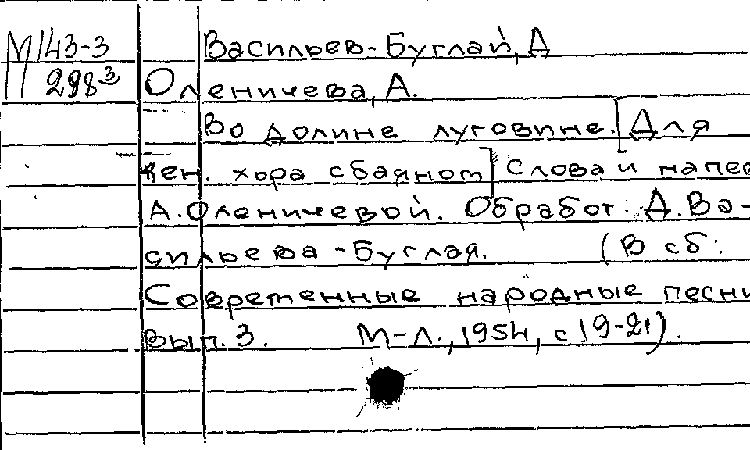 М143-3 Васильев-Буглай, Д
298³ Оленичева, А.
Во долине луговине. [Для
жен. хора с баяном] Слова и напев
А. Оленичевой. Обработ. Д. Ва-
сильева-Буглая. (В сб:
Современные народные песни
Вып. 3. М-Л., 1954, с 19-21).